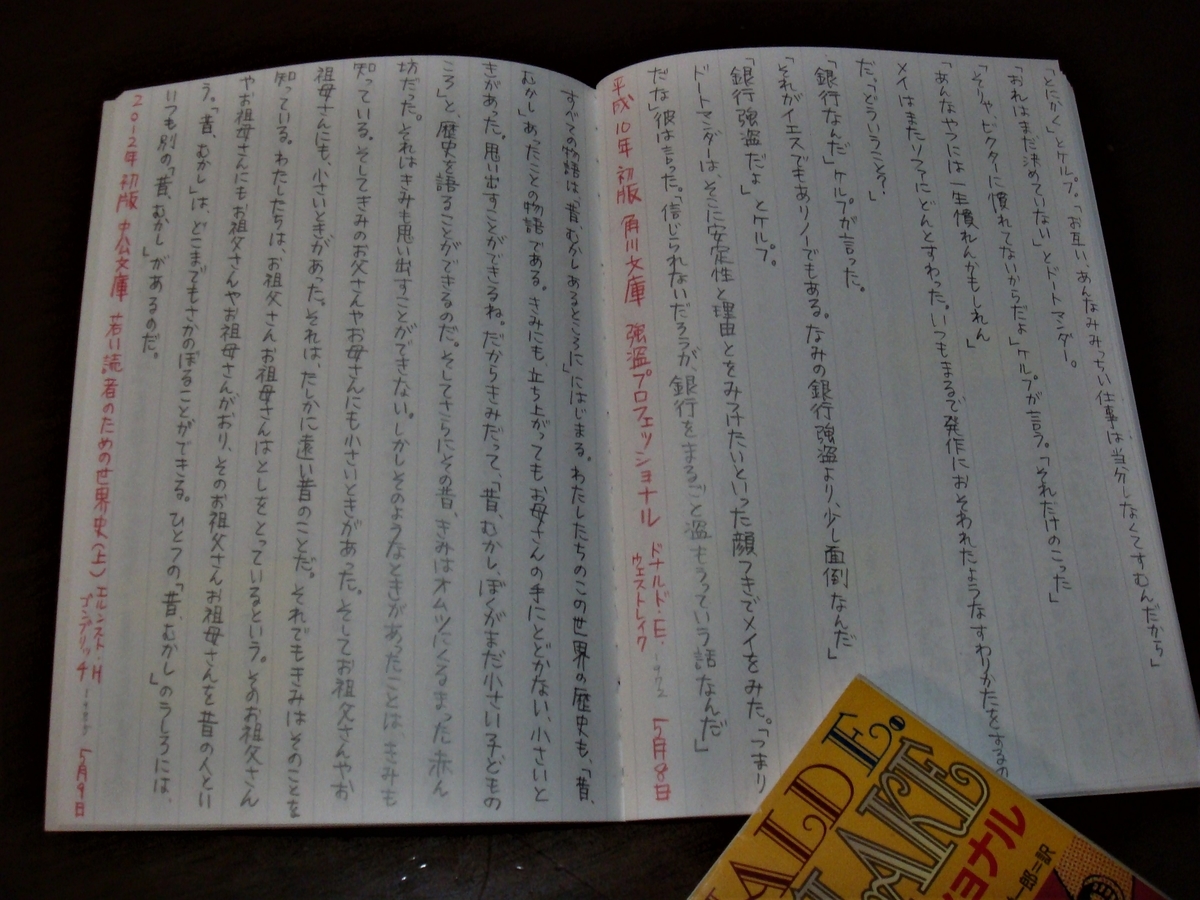 「とにかく」とケルプ。「お互い、あんなみみっちい仕事は当分しなくてすむんだから」
「おれはまだ決めていない」とドートマンダー。
「そりゃ、ビクターに慣れてないからだよ」ケルプが言う。「それだけのこった」
「あんなやつには一生慣れんかもしれん」
メイはまたソファにどんとすわった。いつもまるで発作におそわれたようなすわりかたをするの
だ。「どういうこと？」
「銀行なんだ」ケルプが言った。
「それがイエスでもありノーでもある。なみの銀行強盗より、少し面倒なんだ」
「銀行強盗だよ」とケルプ。
ドートマンダーは、そこに安定性と理由とをみつけたいといった顔つきでメイをみた。「つまり
だな」彼は言った。「信じられないだろうが、銀行をまるごと盗もうっていう話なんだ」
平成10年 初版 角川文庫 強盗プロフェッショナル ドナルド・E・ウェストレイク 1972 5月8日
すべての物語は「昔、むかしあるところに」にはじまる。わたしたちのこの世界の歴史も、「昔、
むかし」あったことの物語である。きみにも、立ち上がってもお母さんの手にとどかない、小さいと
きがあった。思い出すことができるね。だからきみだって、「昔、むかし、ぼくがまだ小さい子どもの
ころ」と、歴史を語ることができるのだ。そしてさらにその昔、きみはオムツにくるまった赤ん
坊だった。それはきみも思い出すことができない。しかしそのようなときがあったことは、きみも
知っている。そしてきみのお父さんやお母さんにも小さいときがあった。そしてお祖父さんやお
祖母さんにも、小さいときがあった。それは、たしかに遠い昔のことだ。それでもきみはそのことを
知っている。わたしたちは、お祖父さんお祖母さんはとしをとっているという。そのお祖父さん
やお祖母さんにもお祖父さんやお祖母さんがおり、そのお祖父さんお祖母さんを昔の人とい
う。「昔、むかし」は、どこまでもさかのぼることができる。ひとつの「昔、むかし」のうしろには、
いつも別の「昔、むかし」があるのだ。」
2012年 初版 中公文庫 若い読者のための世界史（上） エルンスト・H・ゴンブリッチ 5月9日
ALD E.
LAKE
ョナル
一郎=訳